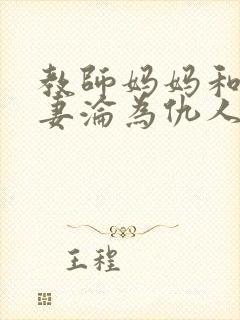 教師妈妈和
妻淪為仇人
王程